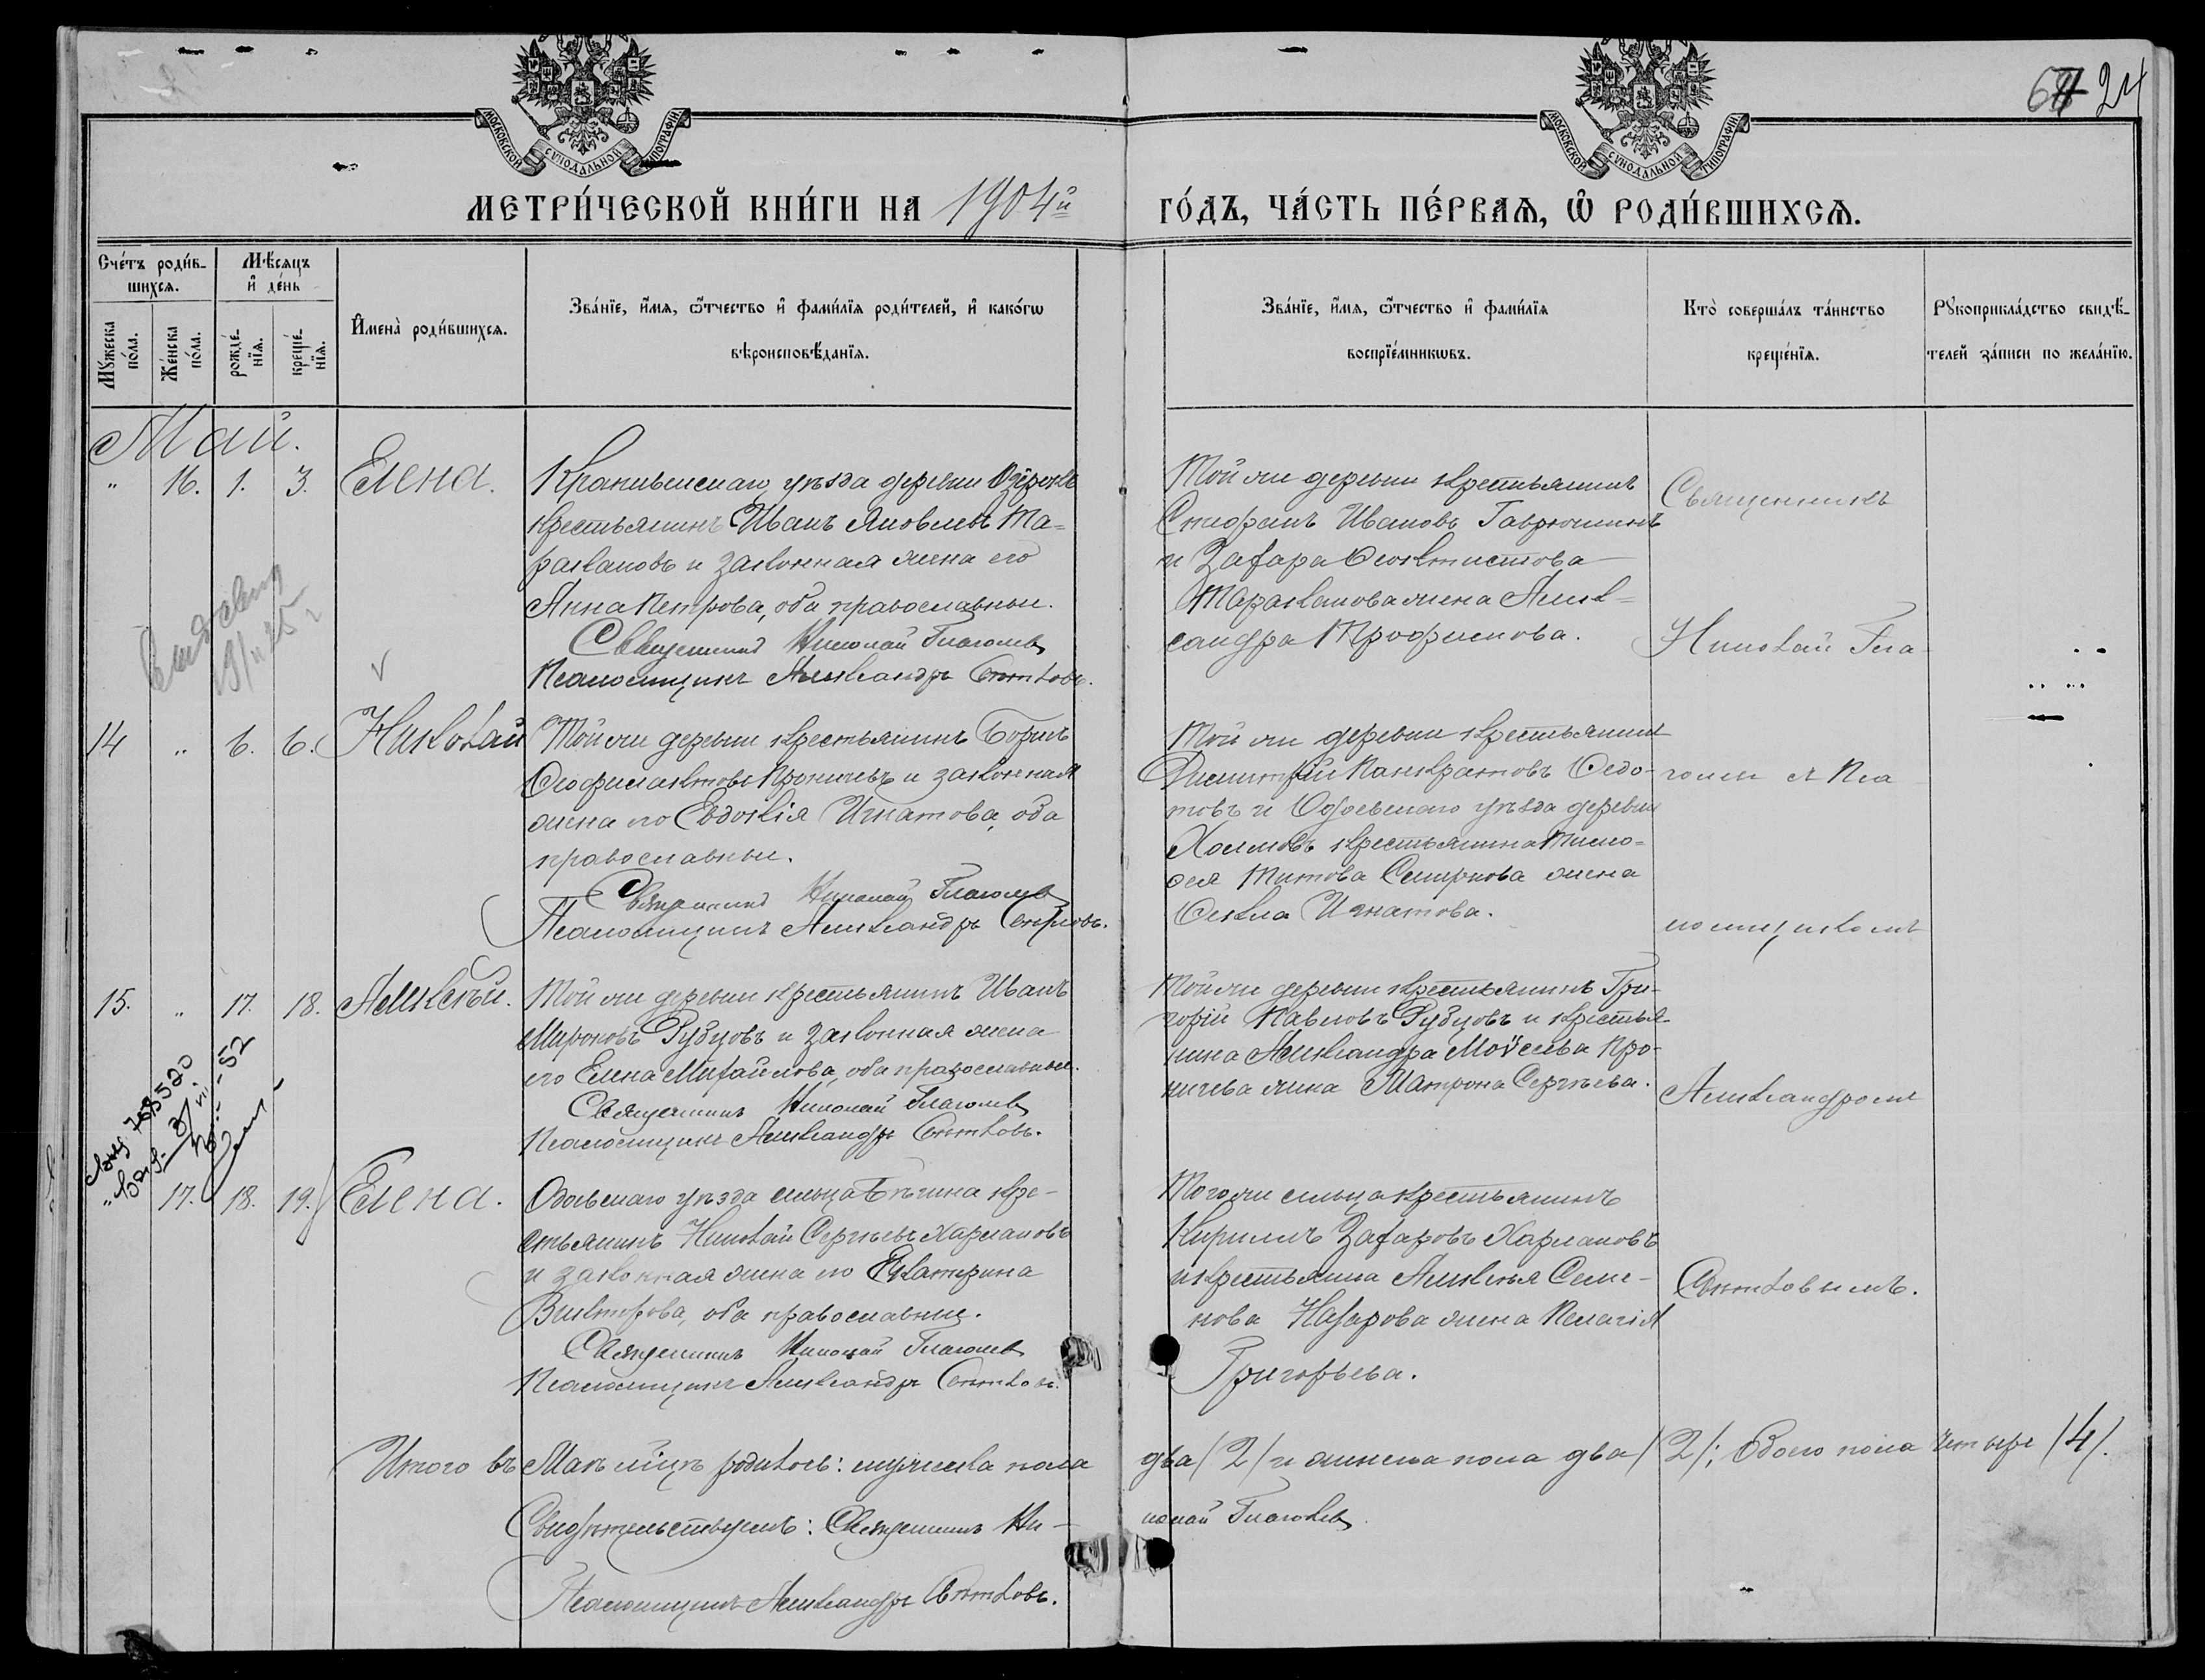 МОСКОВСКОЙ СѴНОДАЛЬНОЙ ТИПОГРАФІИ
МОСКОВСКОЙ СѴНОДАЛЬНОЙ ТИПОГРАФІИ
24
МЕТРИ́ЧЕСКОЙ КНИ́ГИ НА 1904й ГО́ДЪ, ЧА́СТЬ ПЕ́РВАѦ, Ѡ҆ РОДИ́ВШИХСѦ.
Сче́тъ роди́в-
шихсѧ.
Мѣ́сѧцъ
и҆ де́нь
Мꙋ́жеска по́ла.
Же́нска по́ла.
рожде́-
нїѧ.
креще́-
нїѧ.
И҆мена̀ роди́вшихсѧ.
Зва́нїе, и҆́мѧ, ѻ҆́тчество и҆ фами́лїѧ роди́телей, и҆ како́гѡ
вѣроисповѣ́данїѧ.
Зва́нїе, и҆́мѧ, ѻ҆́тчество и҆ фами́лїѧ
воспрїе́мникѡвъ.
Кто̀ соверша́лъ та́инство
креще́нїѧ.
Рꙋкоприкла́дство свидѣ́-
телей за́писи по жела́нїю.
Май.
„ 16. 1. 3. Елена.
Крапивенскаго уѣзда деревни Озерокъ
крестьянинъ Иванъ Яковлевъ Та-
ракановъ и законная жена его
Анна Петрова, оба православные.
Священникъ Николай Глаголевъ
Псаломщикъ Александръ Свѣтловъ.
Той же деревни крестьянинъ
Стефанъ Ивановъ Гаврюшинъ
и Захара Феоктистова
Тараканова жена Алек-
сандра Трофимова.
Священникъ
Николай Гла-
14 „ 6. 6. Николай
Той же деревни крестьянинъ Борисъ
Феофилактовъ Проничевъ и законная
жена его Евдокія Игнатова, оба
православные.
Священникъ Николай Глаголевъ
Псаломщикъ Александръ Свѣтловъ.
Той же деревни крестьянинъ
Димитрій Панкратовъ Федо-
товъ и Одоевскаго уѣзда деревни
крестьянина Тимо-
фея Титова Смирнова жена
Фекла Игнатова.
голевъ съ Пса
ломщикомъ
15. „ 17. 18. Алексѣй.
Той же деревни крестьянинъ Иванъ
Мироновъ Рубцовъ и законная жена
его Елена Михайлова, оба православные.
Священникъ Николай Глаголевъ
Псаломщикъ Александръ Свѣтловъ.
Той же деревни крестьянинъ Гри-
горій Павловъ Рубцовъ и крестья-
нина Александра Моѵсеева Про-
ничева жена Матрона Сергѣева.
Александромъ
„ 17. 18. 19. Елена.
Одоевскаго уѣзда сельца Бѣгина кре-
стьянинъ Николай Сергѣевъ Харламовъ
и законная жена его Екатерина
Викторова, оба православные.
Священникъ Николай Глаголевъ
Псаломщикъ Александръ Свѣтловъ.
Того же сельца крестьянинъ
Кириллъ Захаровъ Харламовъ
и крестьянина Алексѣя Семе-
нова Назарова жена Пелагія
Григорьева.
Свѣтловымъ.
Итого въ Маѣ мѣсяцѣ родилось: мужеска пола два /2/ и женска пола два /2/; обоего пола четыре /4/.
Свидѣтельствуемъ: Священникъ Ни-
колай Глаголевъ
Псаломщикъ Александръ Свѣтловъ.